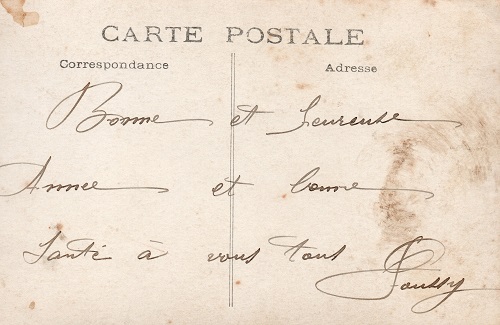 CARTE POSTALE
Correspondance Adresse
Bonne et heureuse
Année et bonne
Santé à vous tous